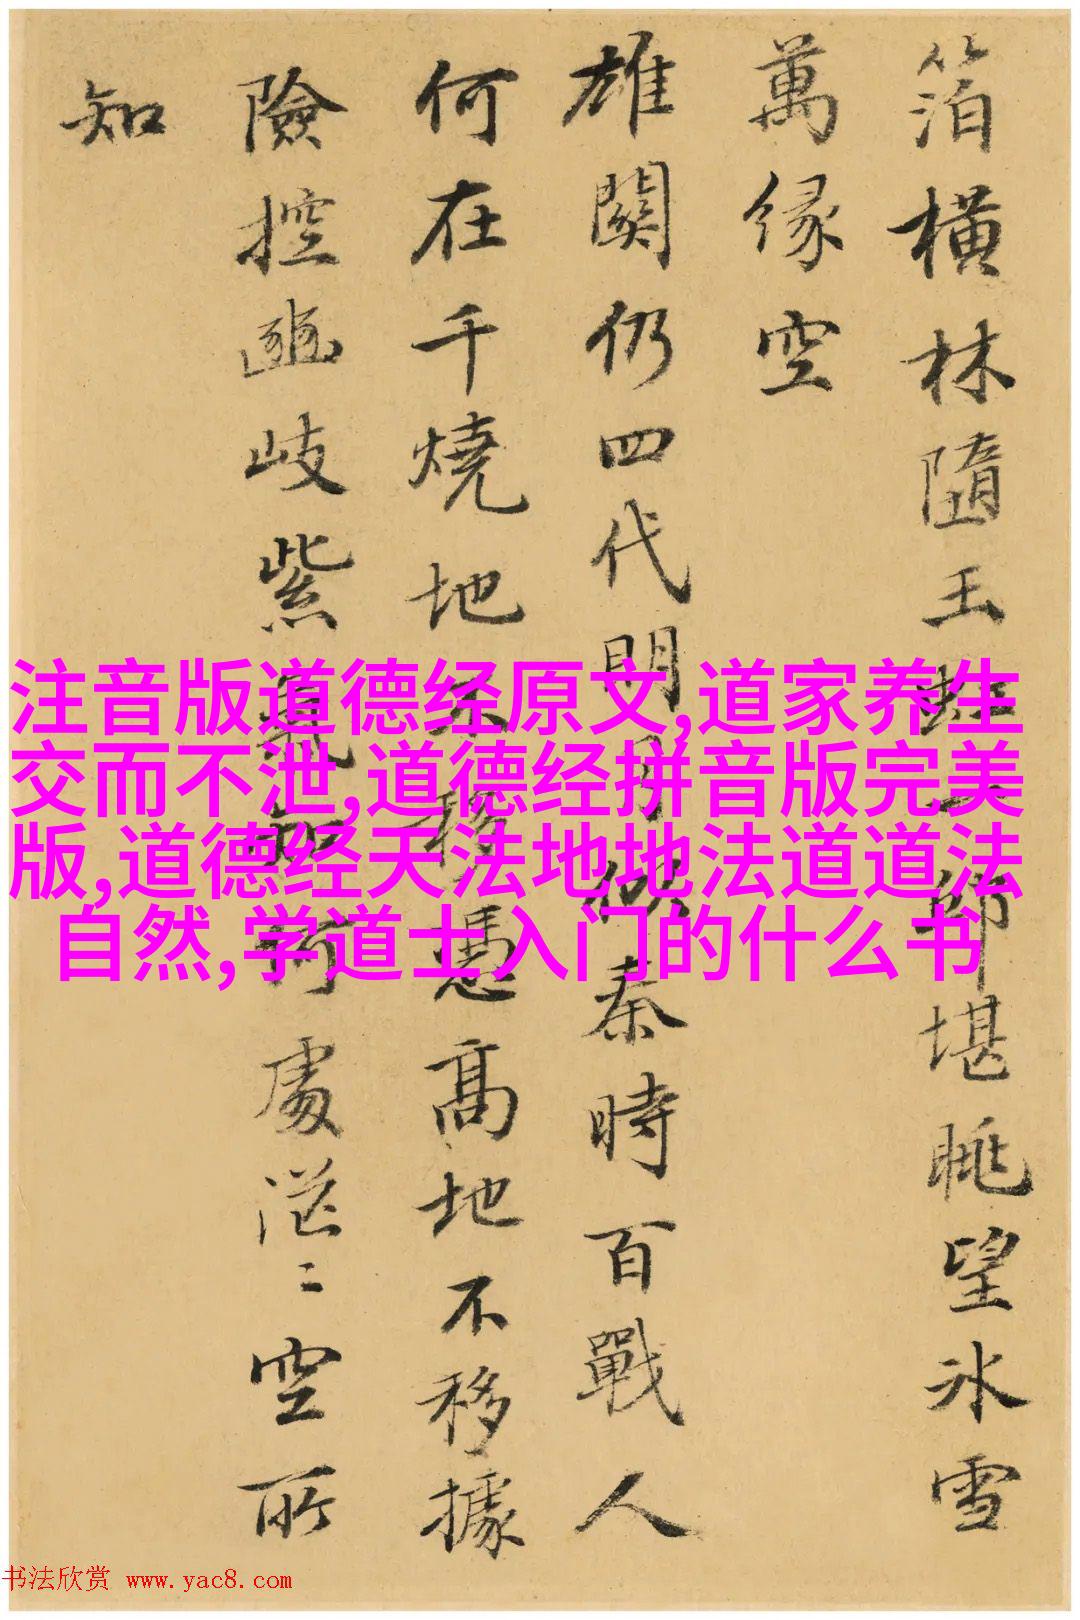 箔橫林隨玉師堪眺望冰雪
萬緣空
雄關仍四代明月似秦時百戰人
何在千燒地不移憑高地不移據
險控豳岐紫氣知何處空所
知
注音版道德经原文,道家养生
交而不泄,道德经拼音版完美
版,道德经天法地地法道道法
自然,学道士入门的什么书
书法欣赏 www.yac8.com